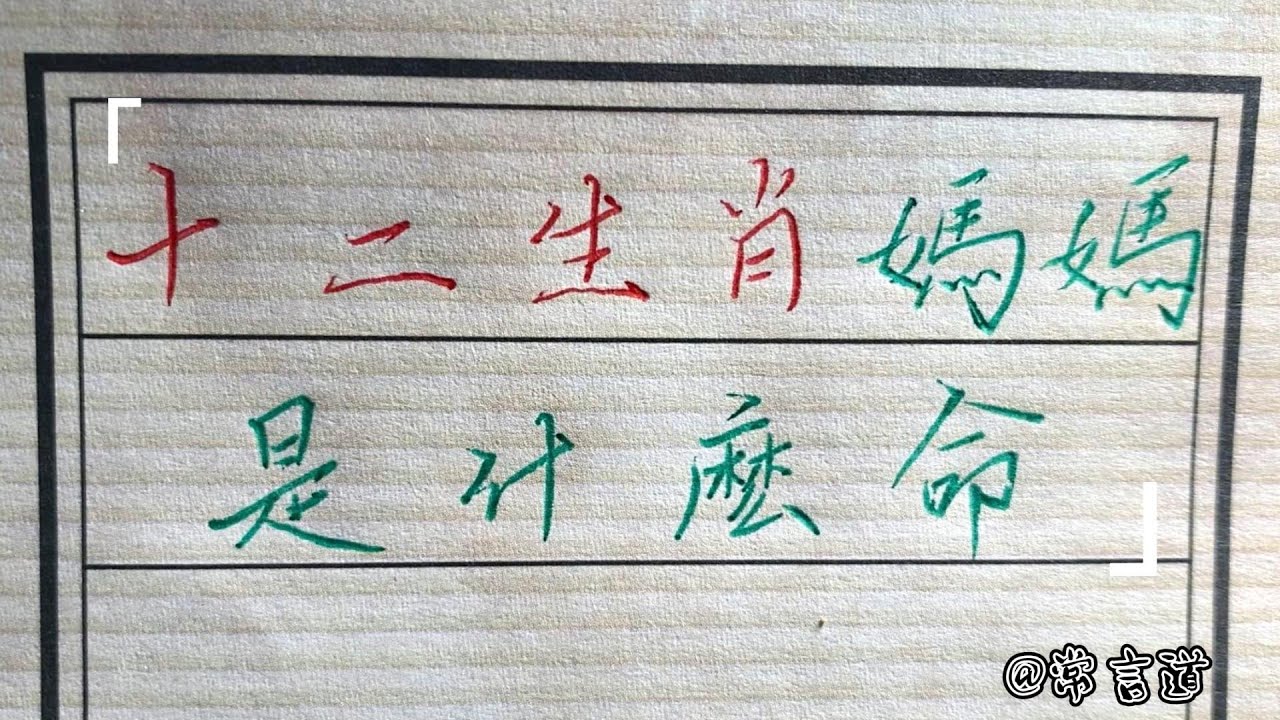 十二生肖媽媽
是什麼命
@常言道